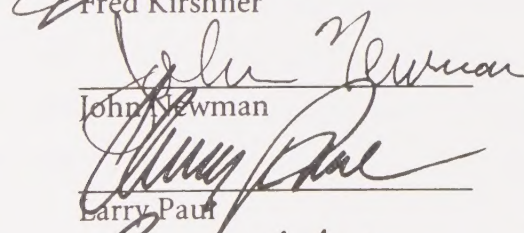 Fred Kirshner
John Newman
John Newman
Larry Paul
Larry Paul